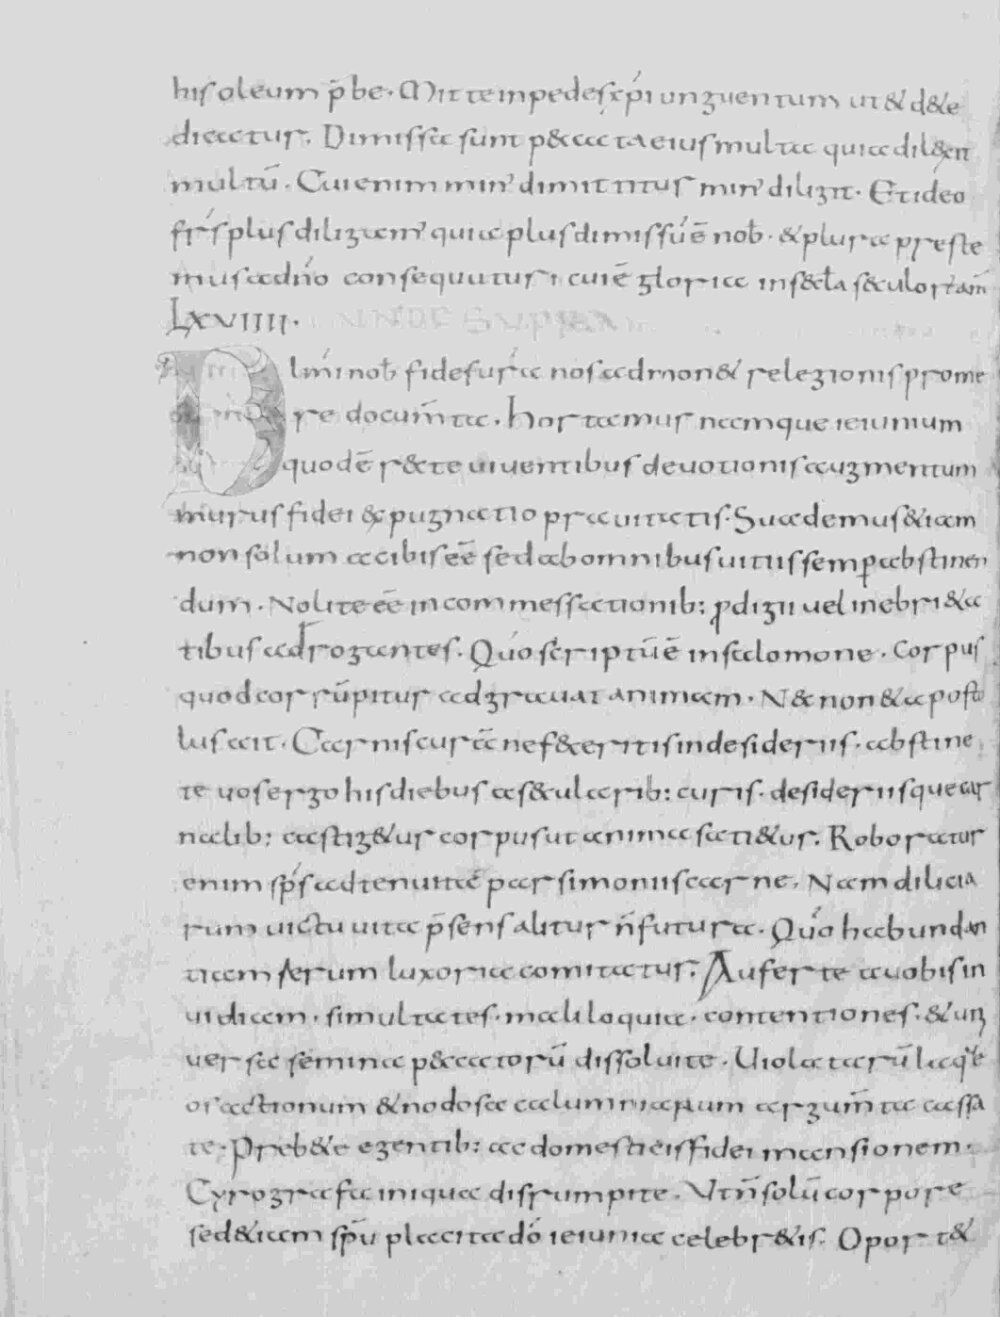 hiſ oleum p̄be. Mitte in pedeſ xp̄i unguentum ut & d&e
dicatur. Dimiſſa ſunt p&cata eiuſ multa quia dil&it
multū. Cui enim min' dimittitur min' diligit. Et ideo
fr̄ſ pluſ diligam' quia pluſ dimiſſū ē nob̄. & plura preſte
muſ a dn̄o conſequuturi cui ē gloria in ſ&l̄a ſ&ulor̄ am̄
Lxviiii.
D l mī nob̄ fideſ ura noſ ad mon& relegioniſ prome
re docum̄ta. Hortamuſ namque ieiunium
quod ē r&te uiuentibuſ deuotioniſ augmentum
muruſ fidei & pugnatio prauitatiſ. Suademuſ &iam
non ſolum a cibiſ eē ſed ab omnibuſ uitiiſ ſemp abſtinen
dum. Nolite eē in commeſſationib; pdigii uel inebri&a
tibuſ adroganteſ. Quo ſcriptū ē in ſalomone. Corpuſ
quod corrūpitur adgrauat animam. N& non & apoſto
luſ ait. Carniſ curā ne f&eritiſ in deſideriiſ. abſtine
te uoſ ergo hiſ diebuſ a ſ&ularib; curiſ. deſideriiſque car
nalib; caſtig&ur corpuſ ut anima ſati&ur. Roboratur
enim ſpſ ad tenuitatē parſimoniiſ carne. Nam dilicia
rum uictu uita p̄ſenſ alitur n̄ futura. Quo habundan
tiam ferum luxoria comitatur. Auferte a uobiſ in
uidiam. ſimultateſ. maliloquia. contentioneſ. & uni
uerſa ſemina p&catorū diſſoluite. Uiolatarū laq̄e
oſ actionum & nodoſa calumniarum argum̄ta caſſa
te. Preb&e egentib; ac domeſticiſ fidei manſionem.
Cyrografa iniqua diſrumpite. Vt n̄ ſolū corpore
ſed &iam ſpū placita dō ieiunia celebr&iſ. Oport&